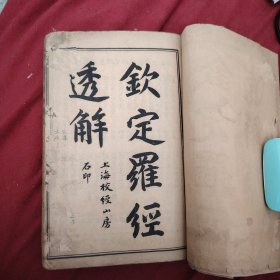 欽定羅經
透解
上海校經山房
石印